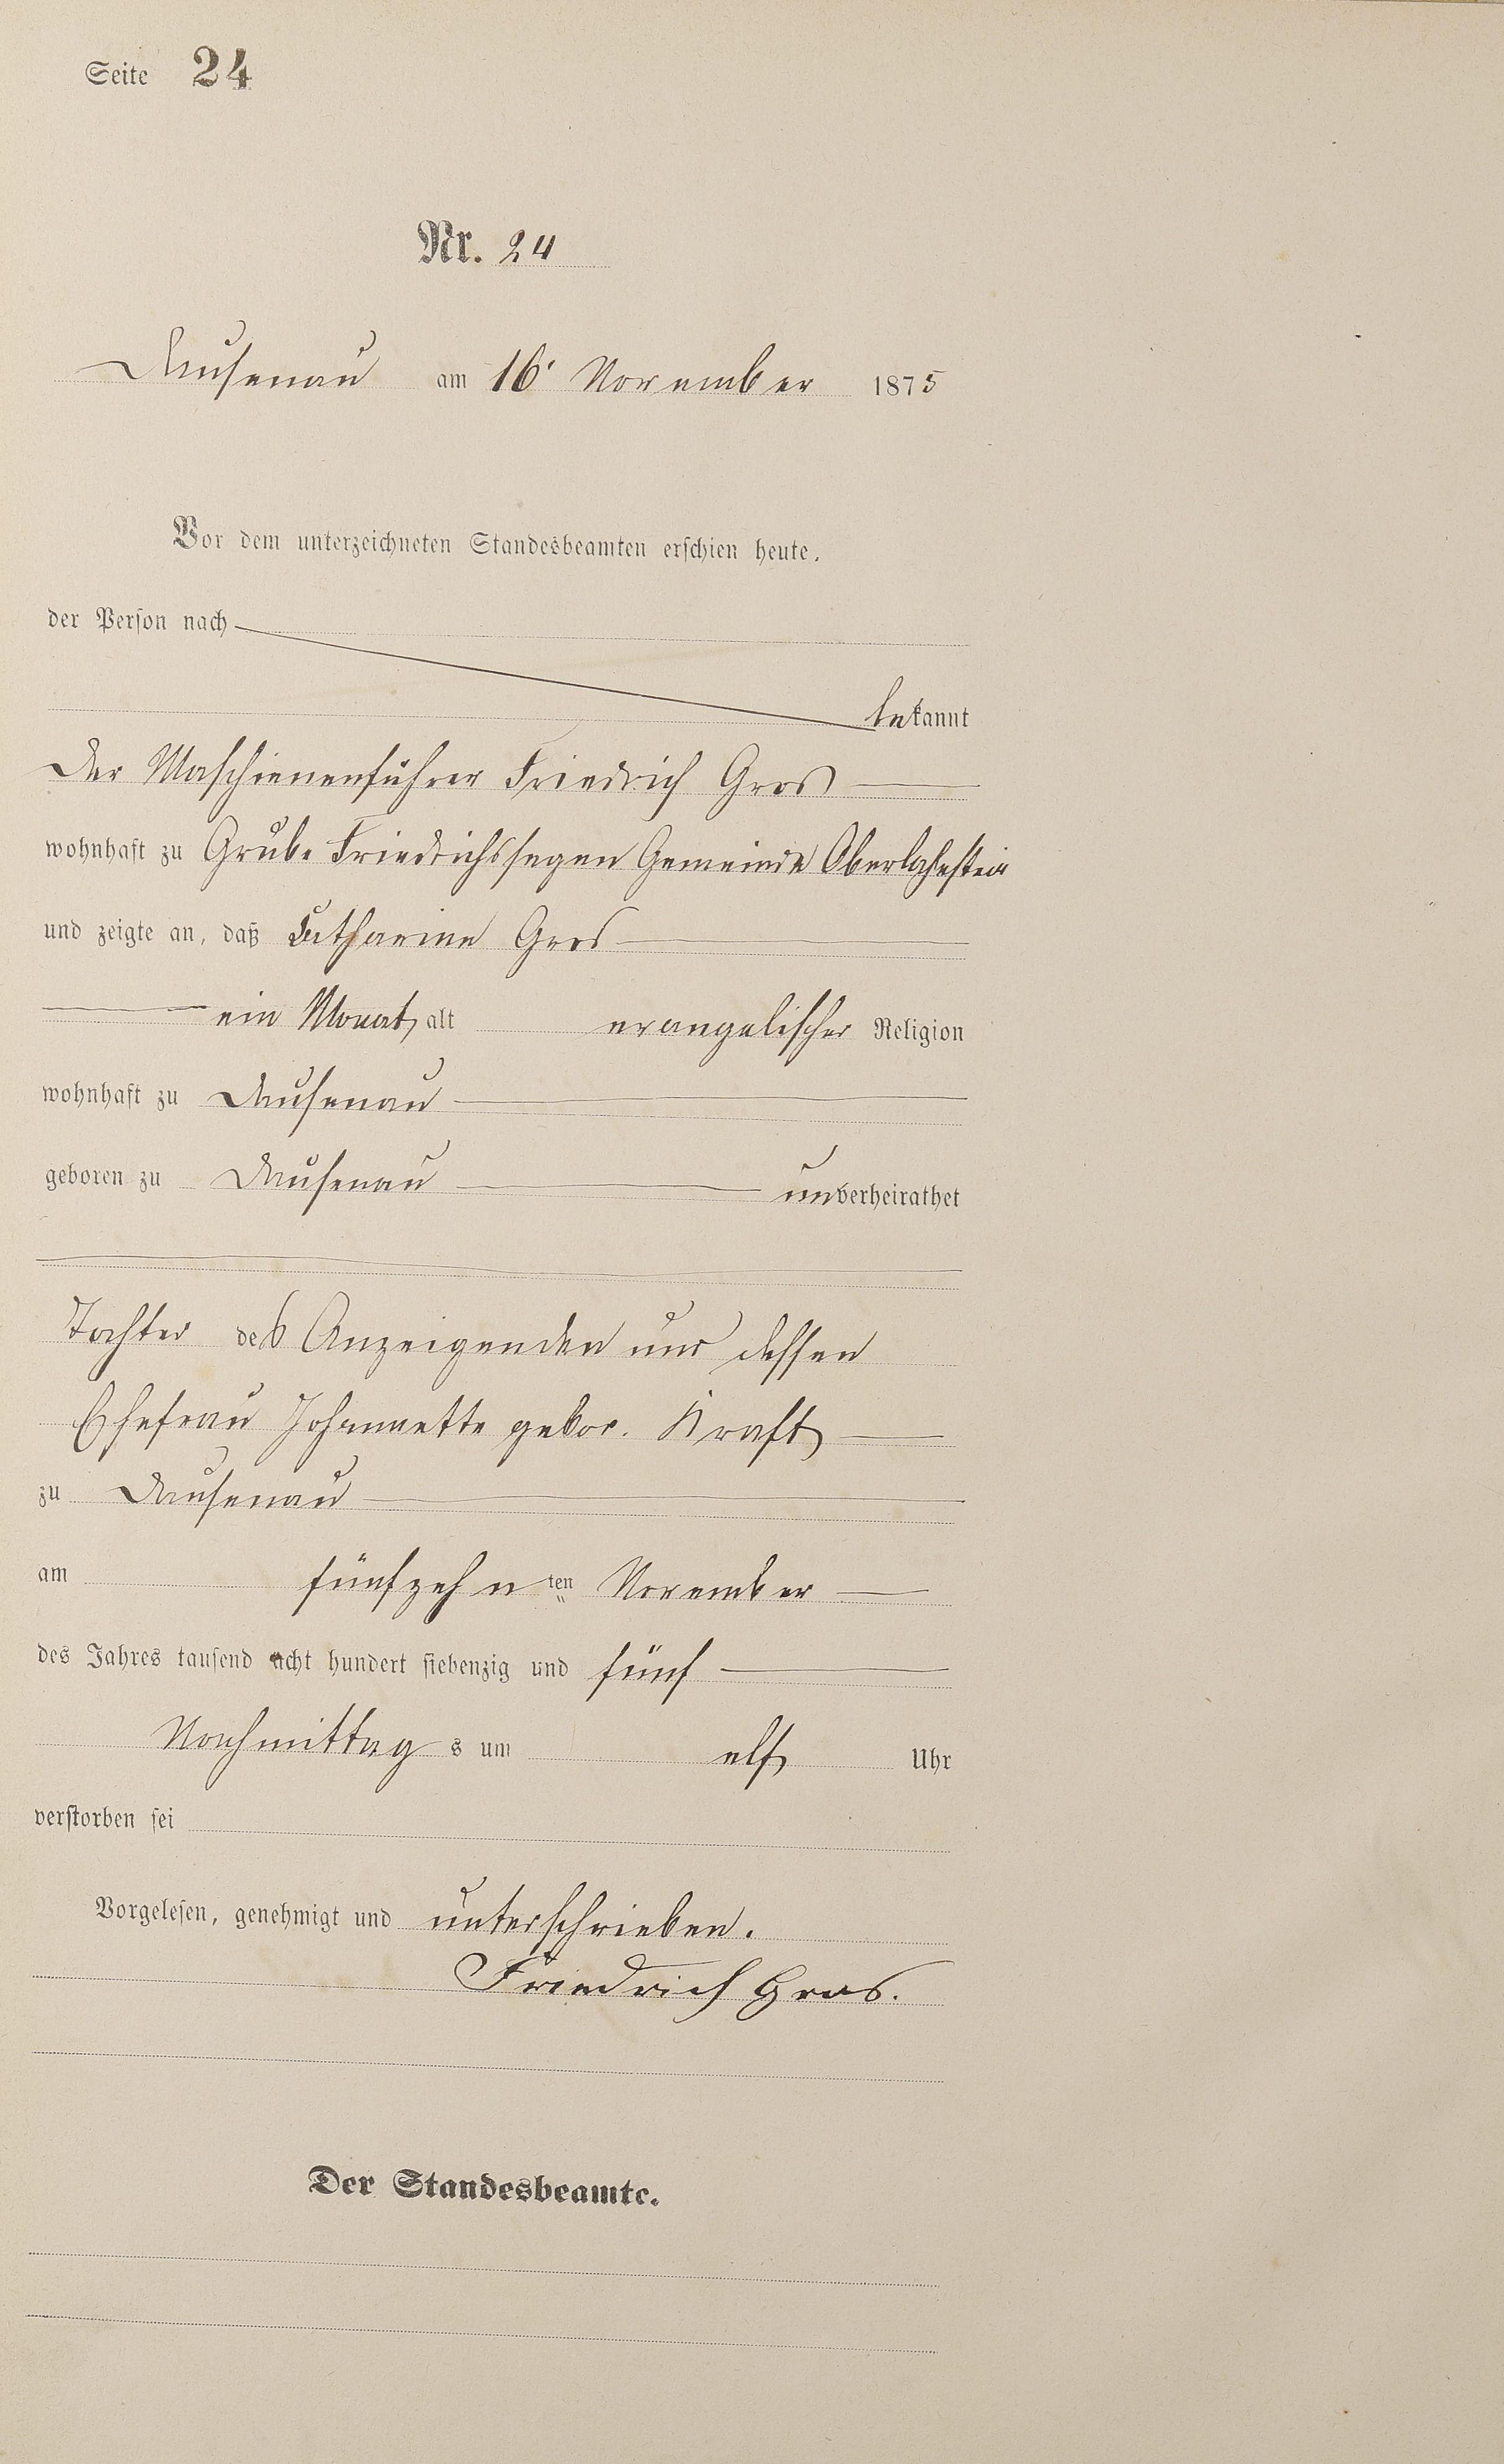 Seite 24
Nr. 24
Dausenau am 16' November 1875
Vor dem unterzeichneten Standesbeamten erschien heute,
der Person nach
bekannt
der Maschienenführer Friedrich Gros
wohnhaft zu Grube Friedrichssegen Gemeinde Oberlahnstein
und zeigte an, daß Catharine Gros
ein Monat alt evangelischer Religion
wohnhaft zu Dausenau
geboren zu Dausenau unverheirathet
Tochter des Anzeigenden und dessen
Ehefrau Johannette gebor. Kraft
zu Dausenau
am fünfzehnten November
des Jahres tausend acht hundert siebenzig und fünf
Nachmittags um elf Uhr
verstorben sei
Vorgelesen, genehmigt und unterschrieben.
Friedrich Gros.
Der Standesbeamte.